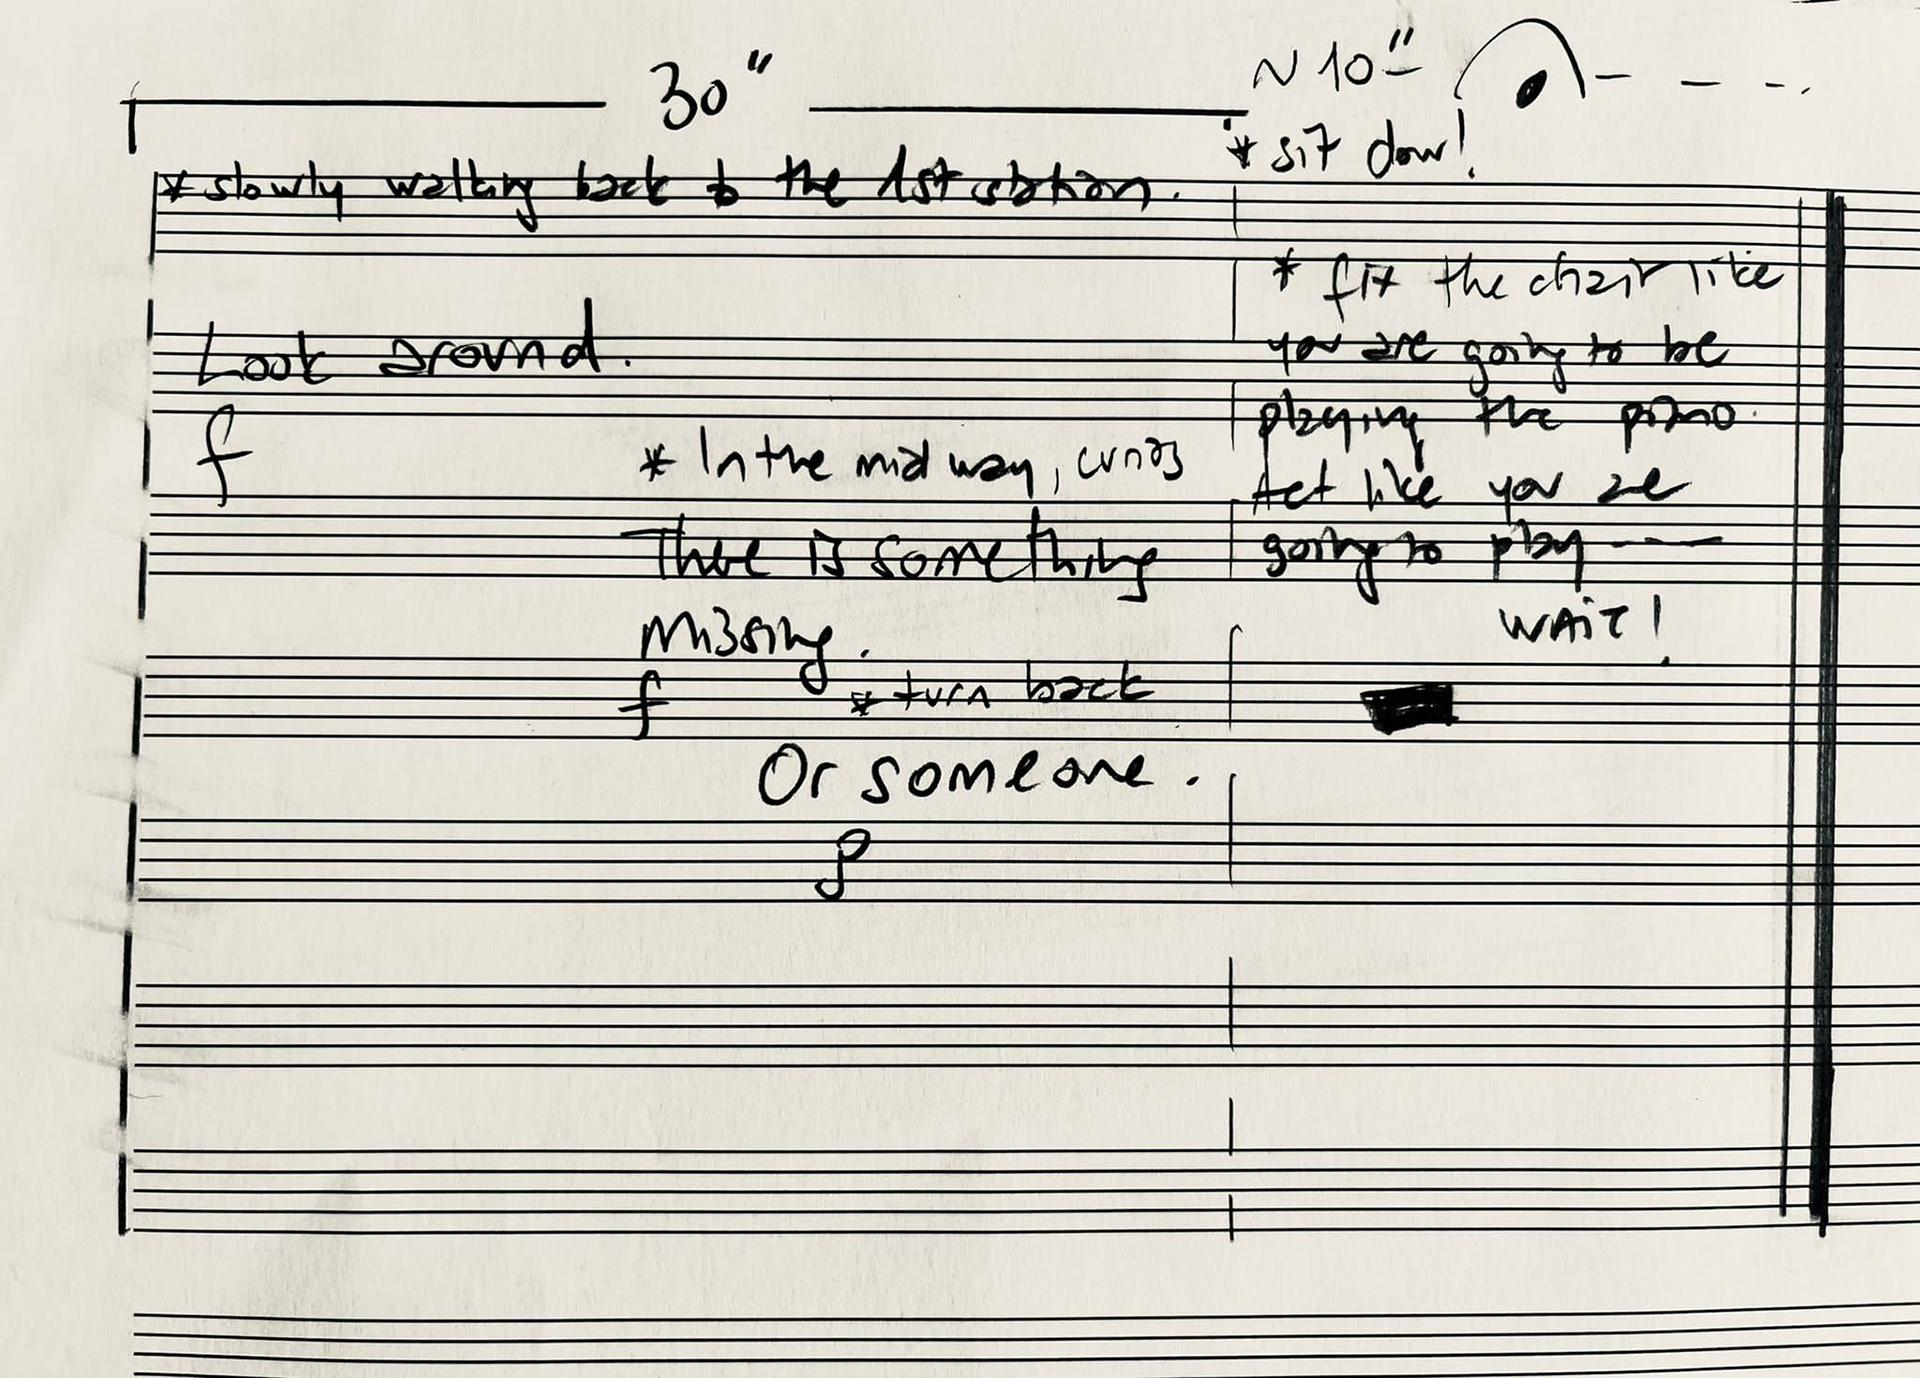 30"
* slowly walking back to the 1st station.
Look around.
f
* In the mid way,
There is something
missing.
f * turn back
Or someone.
p
~ 10"
* sit dow!
* fix the chair like
you are going to be
playing the piano.
Act like you are
going to play ----
WAIT!